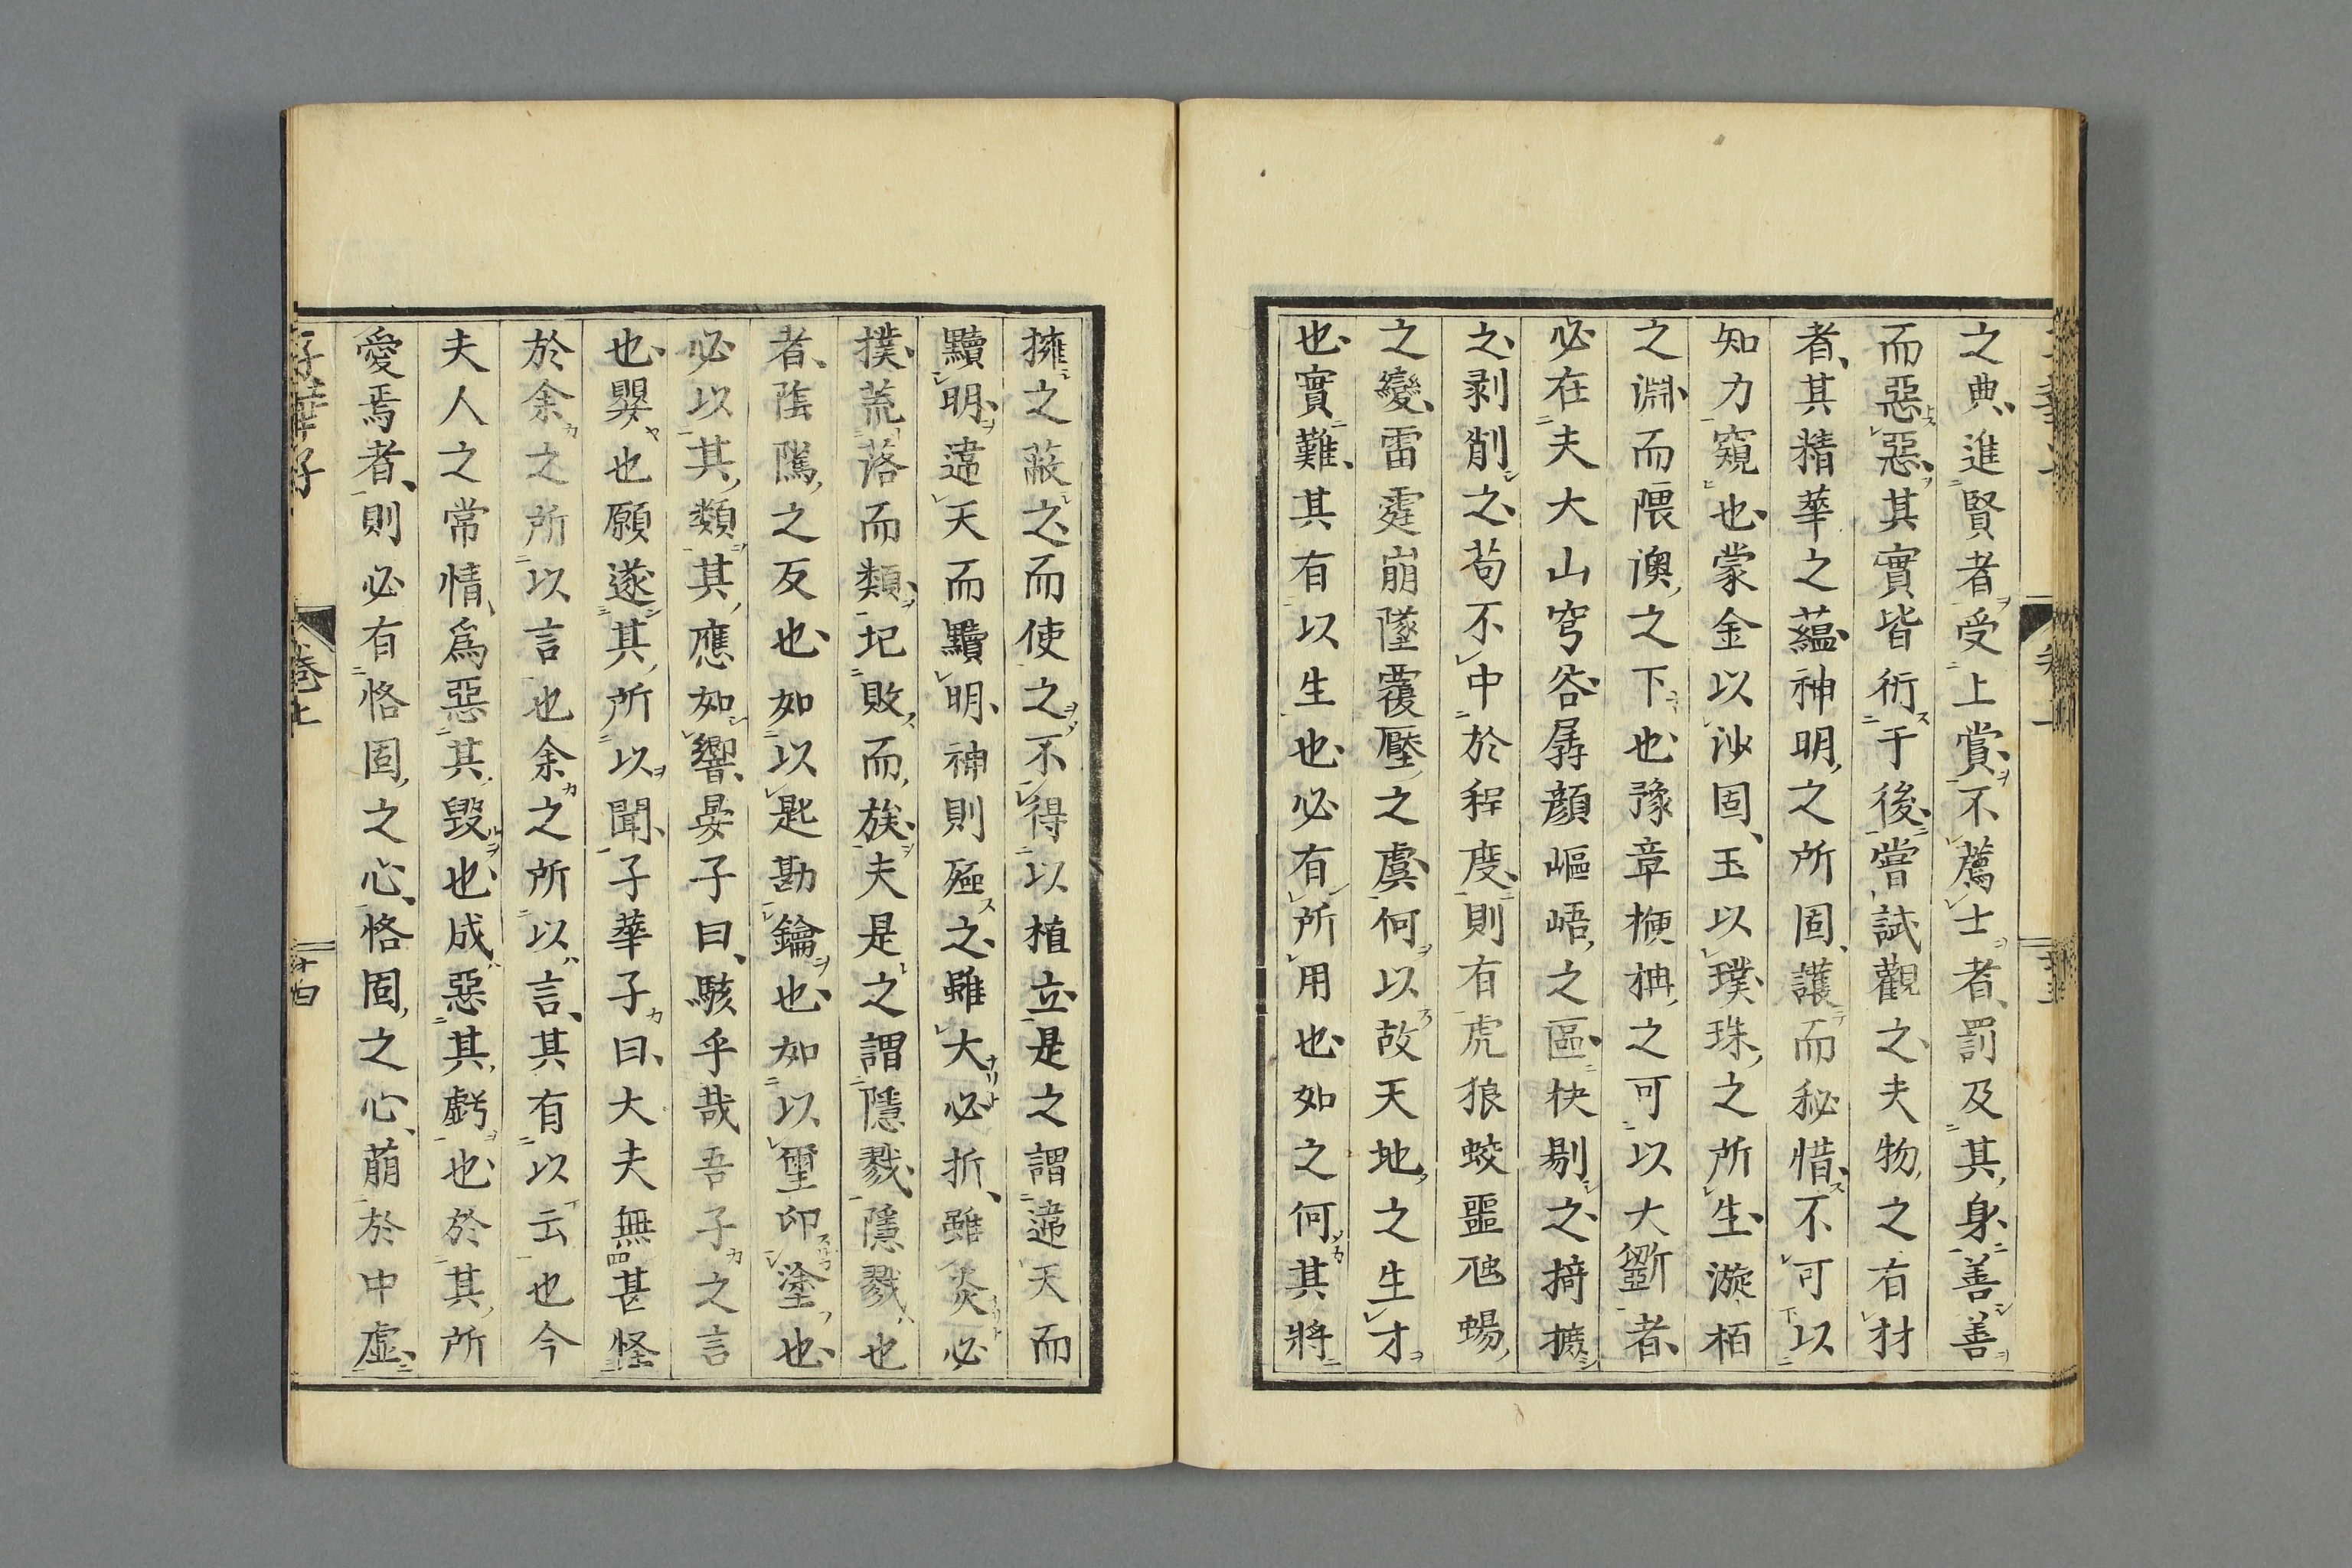 之典進賢者受上賞不薦士者罰及其身善善
而惡惡其實皆衍于後嘗試觀之夫物之有材
者其精華之蘊神明之所固護而秘惜不可以
知力窺也蒙金以沙固玉以璞珠之所生漩栢
之淵而隈澳之下也豫章楩柟之可以大斵者
必在夫大山穹谷孱顔嶇峿之區抉剔之掎摭
之剥削之苟不中於程度則有虎狼蛟噩虺蜴
之變雷霆崩墜覆壓之虞何以故天地之生才
也實難其有以生也必有所用也如之何其將
擁之蔽之而使之不得以植立是之謂違天而
黷明違天而黷明神則殛之雖大必折雖炎必
撲荒落而類圮敗而族夫是之謂隱戮隱戮也
者陰隲之反也如以匙勘鑰也如以璽印塗也
必以其類其應如響晏子曰駭乎哉吾子之言
也嬰也願遂其所以聞子華子曰大夫無甚怪
於余之所以言也余之所以言其有以云也今
夫人之常情爲惡其毀也成惡其虧也於其所
愛焉者則必有恪固之心恪固之心萠於中虛
子華子
卷上